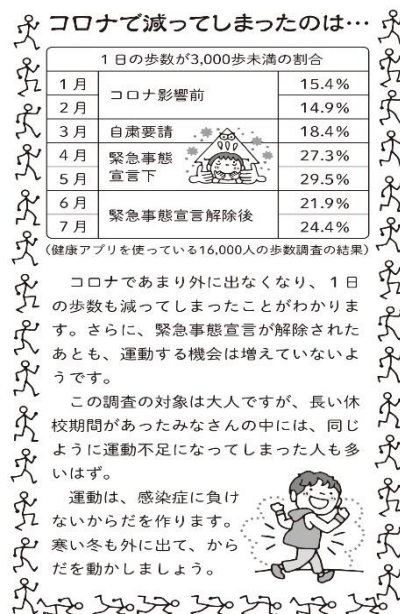 コロナで減ってしまったのは…
1日の歩数が3,000歩未満の割合
1月 コロナ影響前 15.4%
2月 14.9%
3月 自粛要請 18.4%
4月 緊急事態 27.3%
5月 宣言下 29.5%
6月 緊急事態宣言解除後 21.9%
7月 24.4%
(健康アプリを使っている16,000人の歩数調査の結果)
コロナであまり外に出なくなり、1日
の歩数も減ってしまったことがわかりま
す。さらに、緊急事態宣言が解除された
あとも、運動する機会は増えていないよ
うです。
この調査の対象は大人ですが、長い休
校期間があったみなさんの中には、同じ
ように運動不足になってしまった人も多
いはず。
運動は、感染症に負け
ないからだを作ります。
寒い冬も外に出て、から
だを動かしましょう。